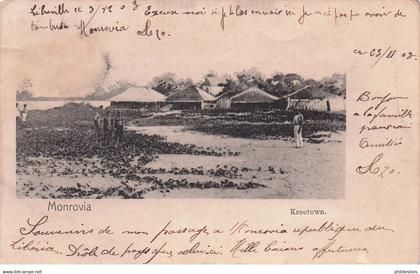 Libreville ce 3/12 03 Excusez moi si plus envisir ni je mai pas pu avoir de
timbres de Monrovia Leo.
ce 23/11 03
Bonjour
à la famille
Amitiés
Leo.
Monrovia
Krootown.
Souvenirs de mon passage a Monrovia republique du
Libéria. Drôle de pays Mille baisers affectueux
philosbox.eu